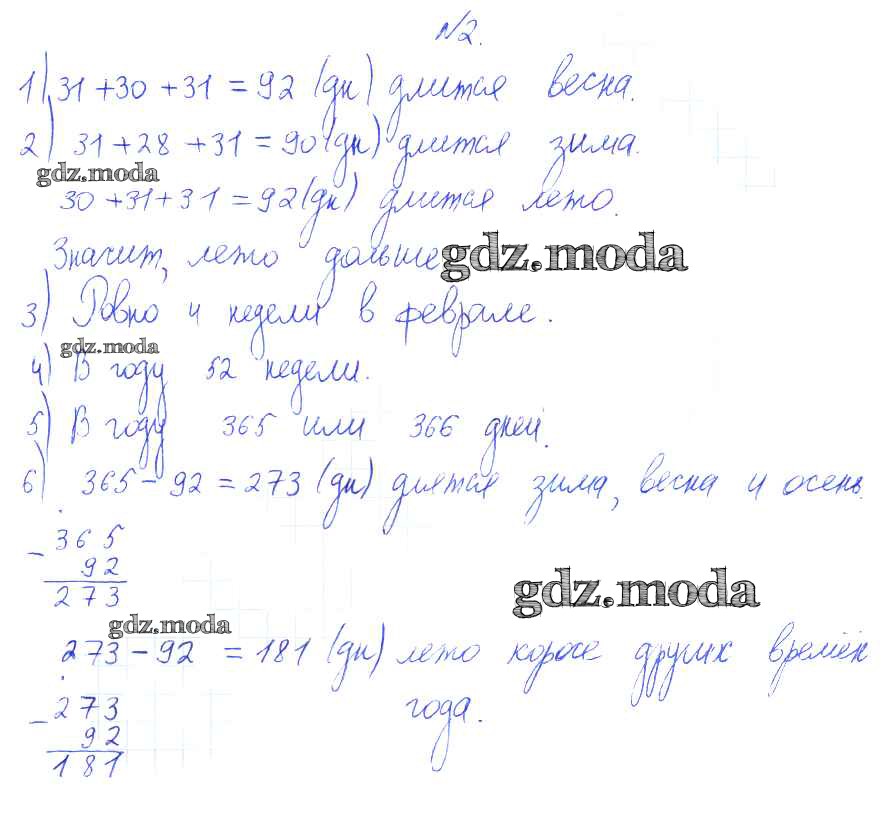 №2.
1) 31 + 30 + 31 = 92 (дн) длится весна.
2) 31 + 28 + 31 = 90 (дн) длится зима.
gdz.moda
30 + 31 + 31 = 92 (дн) длится лето.
Значит, лето дольше gdz.moda
3) Ровно 4 недели в феврале.
gdz.moda
4) В году 52 недели.
5) В году 365 или 366 дней.
6) 365 - 92 = 273 (дн) длятся зима, весна и осень.
- 365
92
273
gdz.moda
gdz.moda
273 - 92 = 181 (дн) лето короче других времён
- 273 года.
92
181